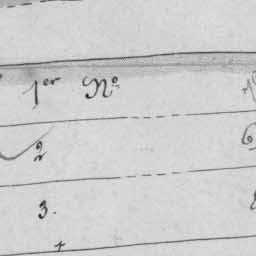 1er No
2
3.